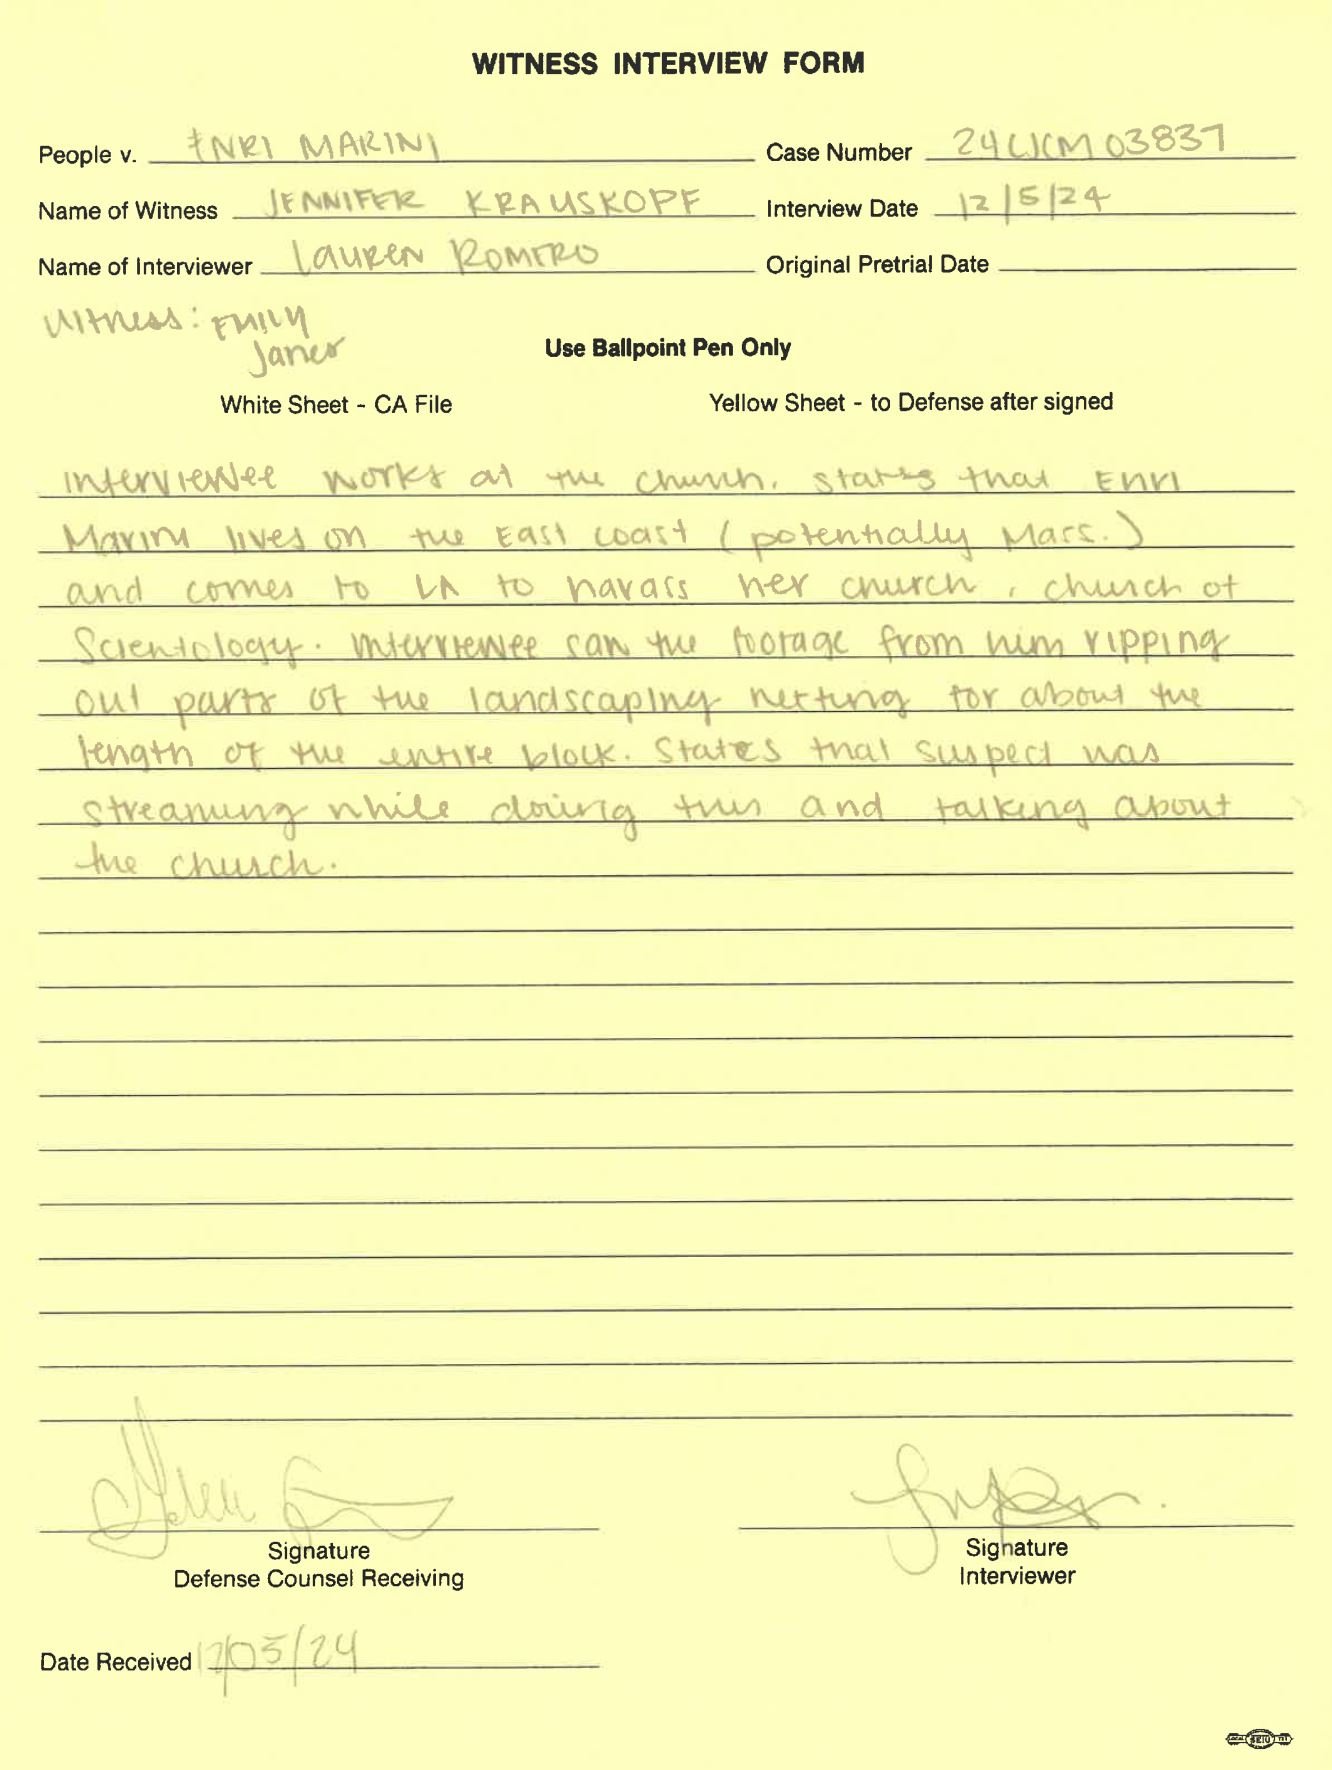 WITNESS INTERVIEW FORM
People v. ENRI MARINI Case Number 24CJCM03837
Name of Witness JENNIFER KRAUSKOPF Interview Date 12/5/24
Name of Interviewer LAUREN ROMERO Original Pretrial Date
Witness: EMILY
Janes
Use Ballpoint Pen Only
White Sheet - CA File Yellow Sheet - to Defense after signed
Interviewee works at the church. states that Enri
Marini lives on the East coast (potentially Mass.)
and comes to LA to harass her church, church of
Scientology. Interviewee saw the footage from him ripping
out parts of the landscaping netting for about the
length of the entire block. States that suspect was
streaming while doing this and talking about
the church.
Signature Signature
Defense Counsel Receiving Interviewer
Date Received 12/05/24
SEIU